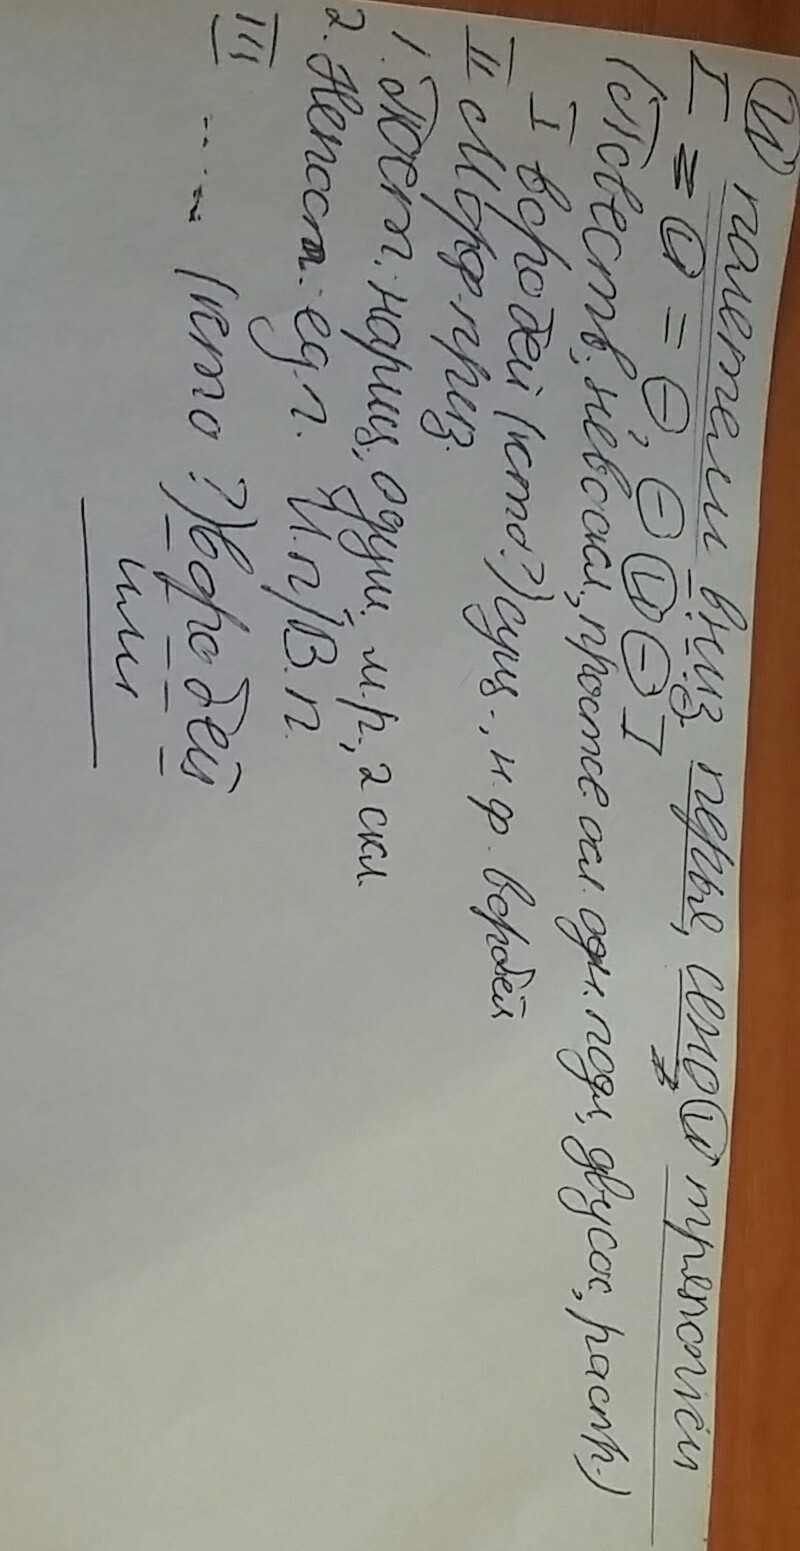 И полетели вниз перья, сено и тряпочки
I = И = О, О И О I
(Повеств, невоскл, простое осл. одн. подл, двусос, распр.)
I воробей (кто?) сущ., н.ф. воробей
II Морф. приз.
1. Пост. нариц, одуш, м.р., 2 скл.
2. Непост. ед. ч. И.п/В.п.
III .... (кто?) воробей
или